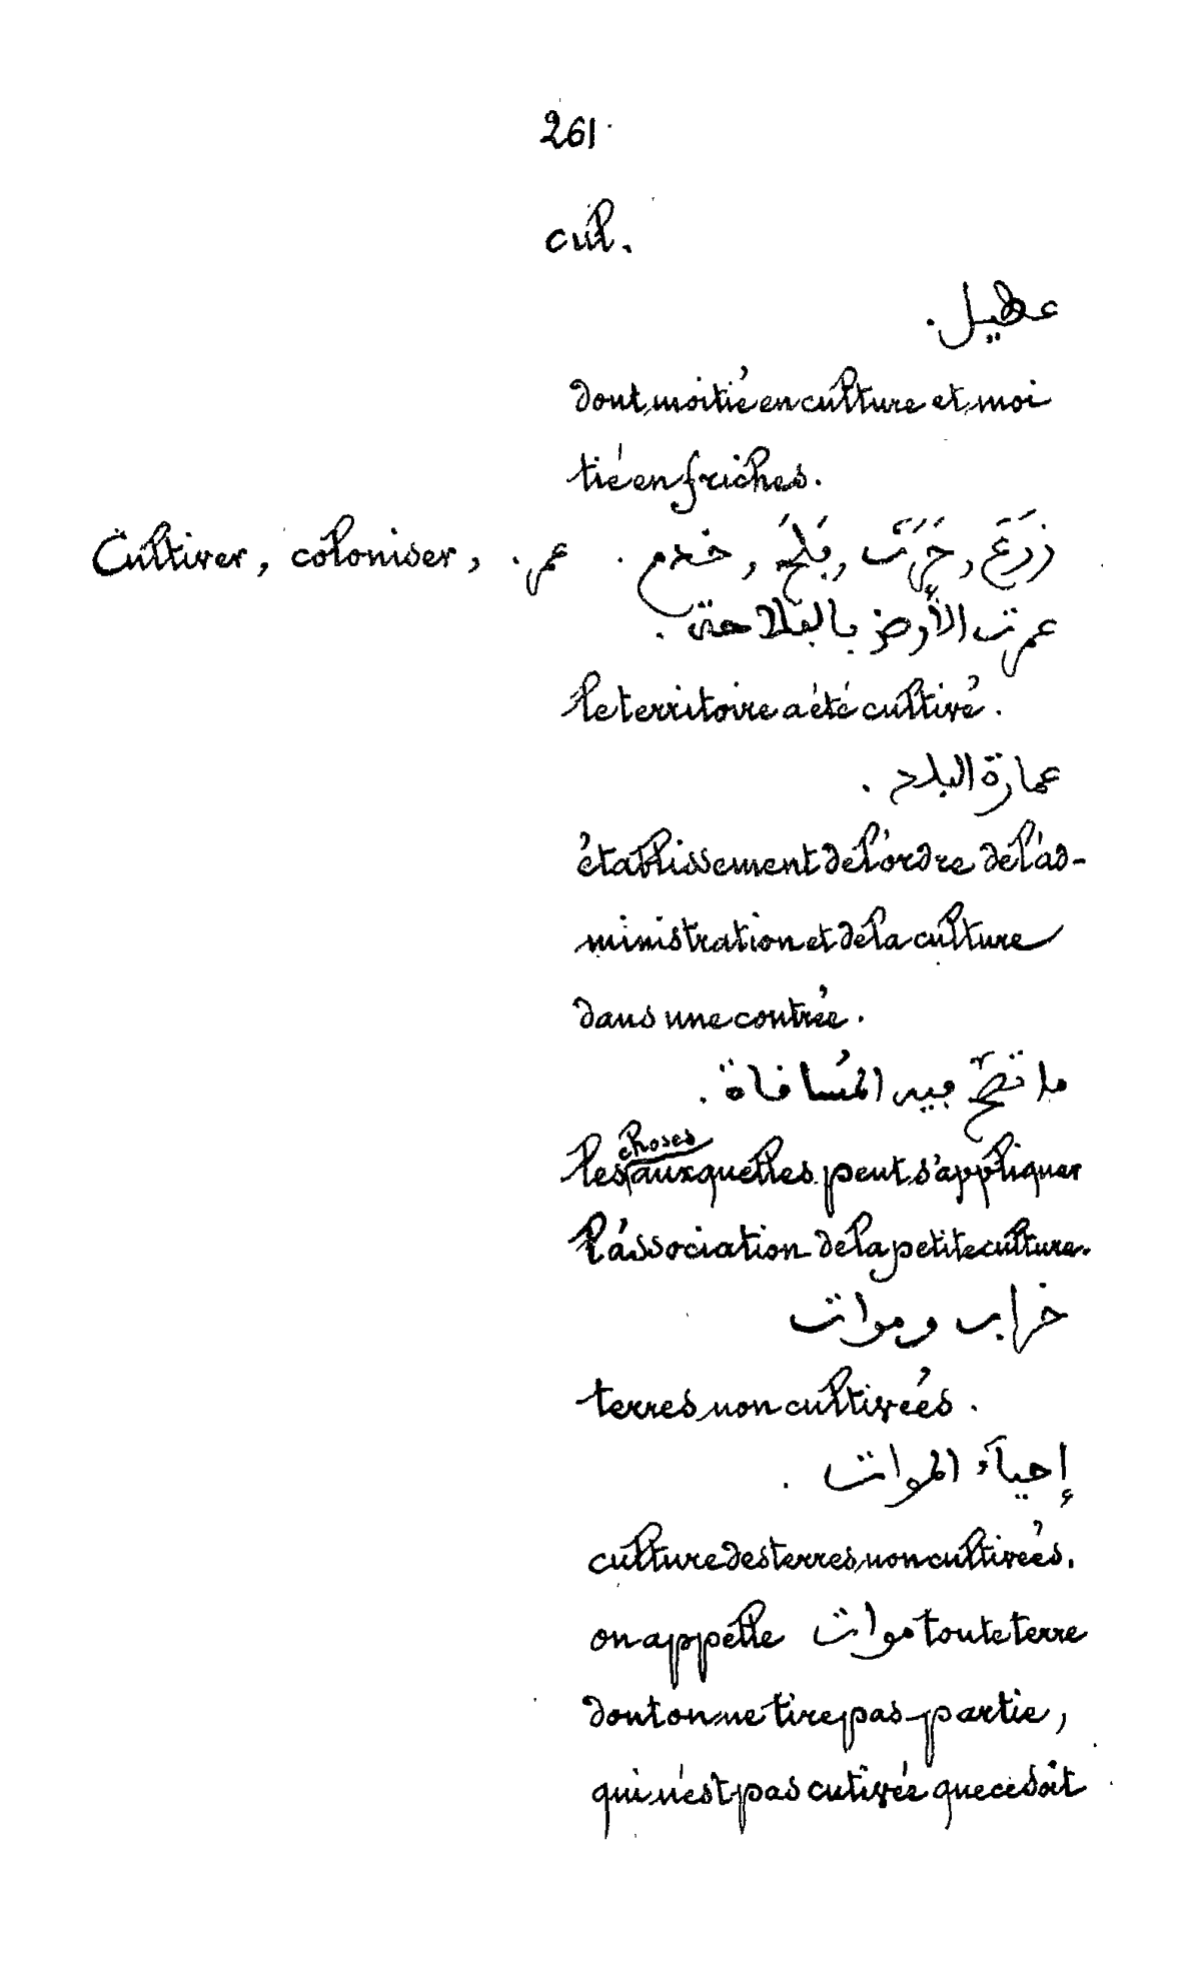 261.
cul.
عطيل.
dont moitié en culture et moi
tié en friches.
Cultiver, coloniser, زَرَعَ, حَرَثَ, ڢَلَحَ, خدم. عمر.
عمرت الأرض بالڢلاحة.
le territoire a été cultivé.
عمارة البلاد.
établissement de l'ordre de l'ad-
ministration et de la culture
dans une contrée.
ما تصحّ ڢيه المُسافاة.
les choses auxquelles peut s'appliquer
l'association de la petite culture.
خراب وموات
terres non cultivées.
إحيآء الموات.
culture des terres non cultivées.
on appelle موات toute terre
dont on ne tire pas partie,
qui n'est pas cutivée que ce soit